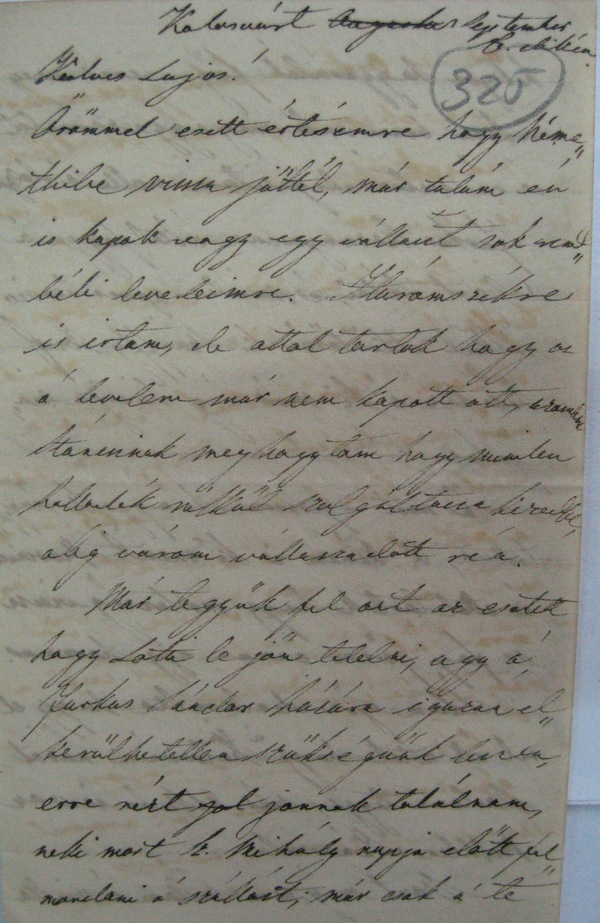 Kolosvárt Augustus September
6. dikán
325
Kedves Lajos!
Örömmel esett értésemre hogy Néme„
thibe vissza jöttél, már talám én
is kapok vagy egy választ sok rend„
béli leveleimre. Háromszékre
is irtam, de attol tartok hogy az
á levelem már nem kapott ott,
meg hagytam hogy minden
haladék nélkül szolgáltassa kezedbe,
alig várom válaszadott reá.
Már tegyük fel azt az esetet
hogy Loti le jön telelni, ugy á
Farkas Sándor házára igazán el„
kerülhetetlen szükségünk lenne,
erre nézt jol jonnak találnam,
neki most Sz. Mihály napja előtt fel„
mondani á szállást, már csak á te